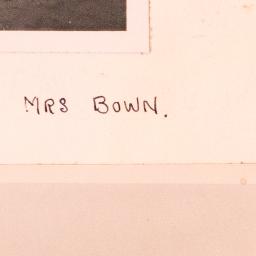 MRS BOWN.